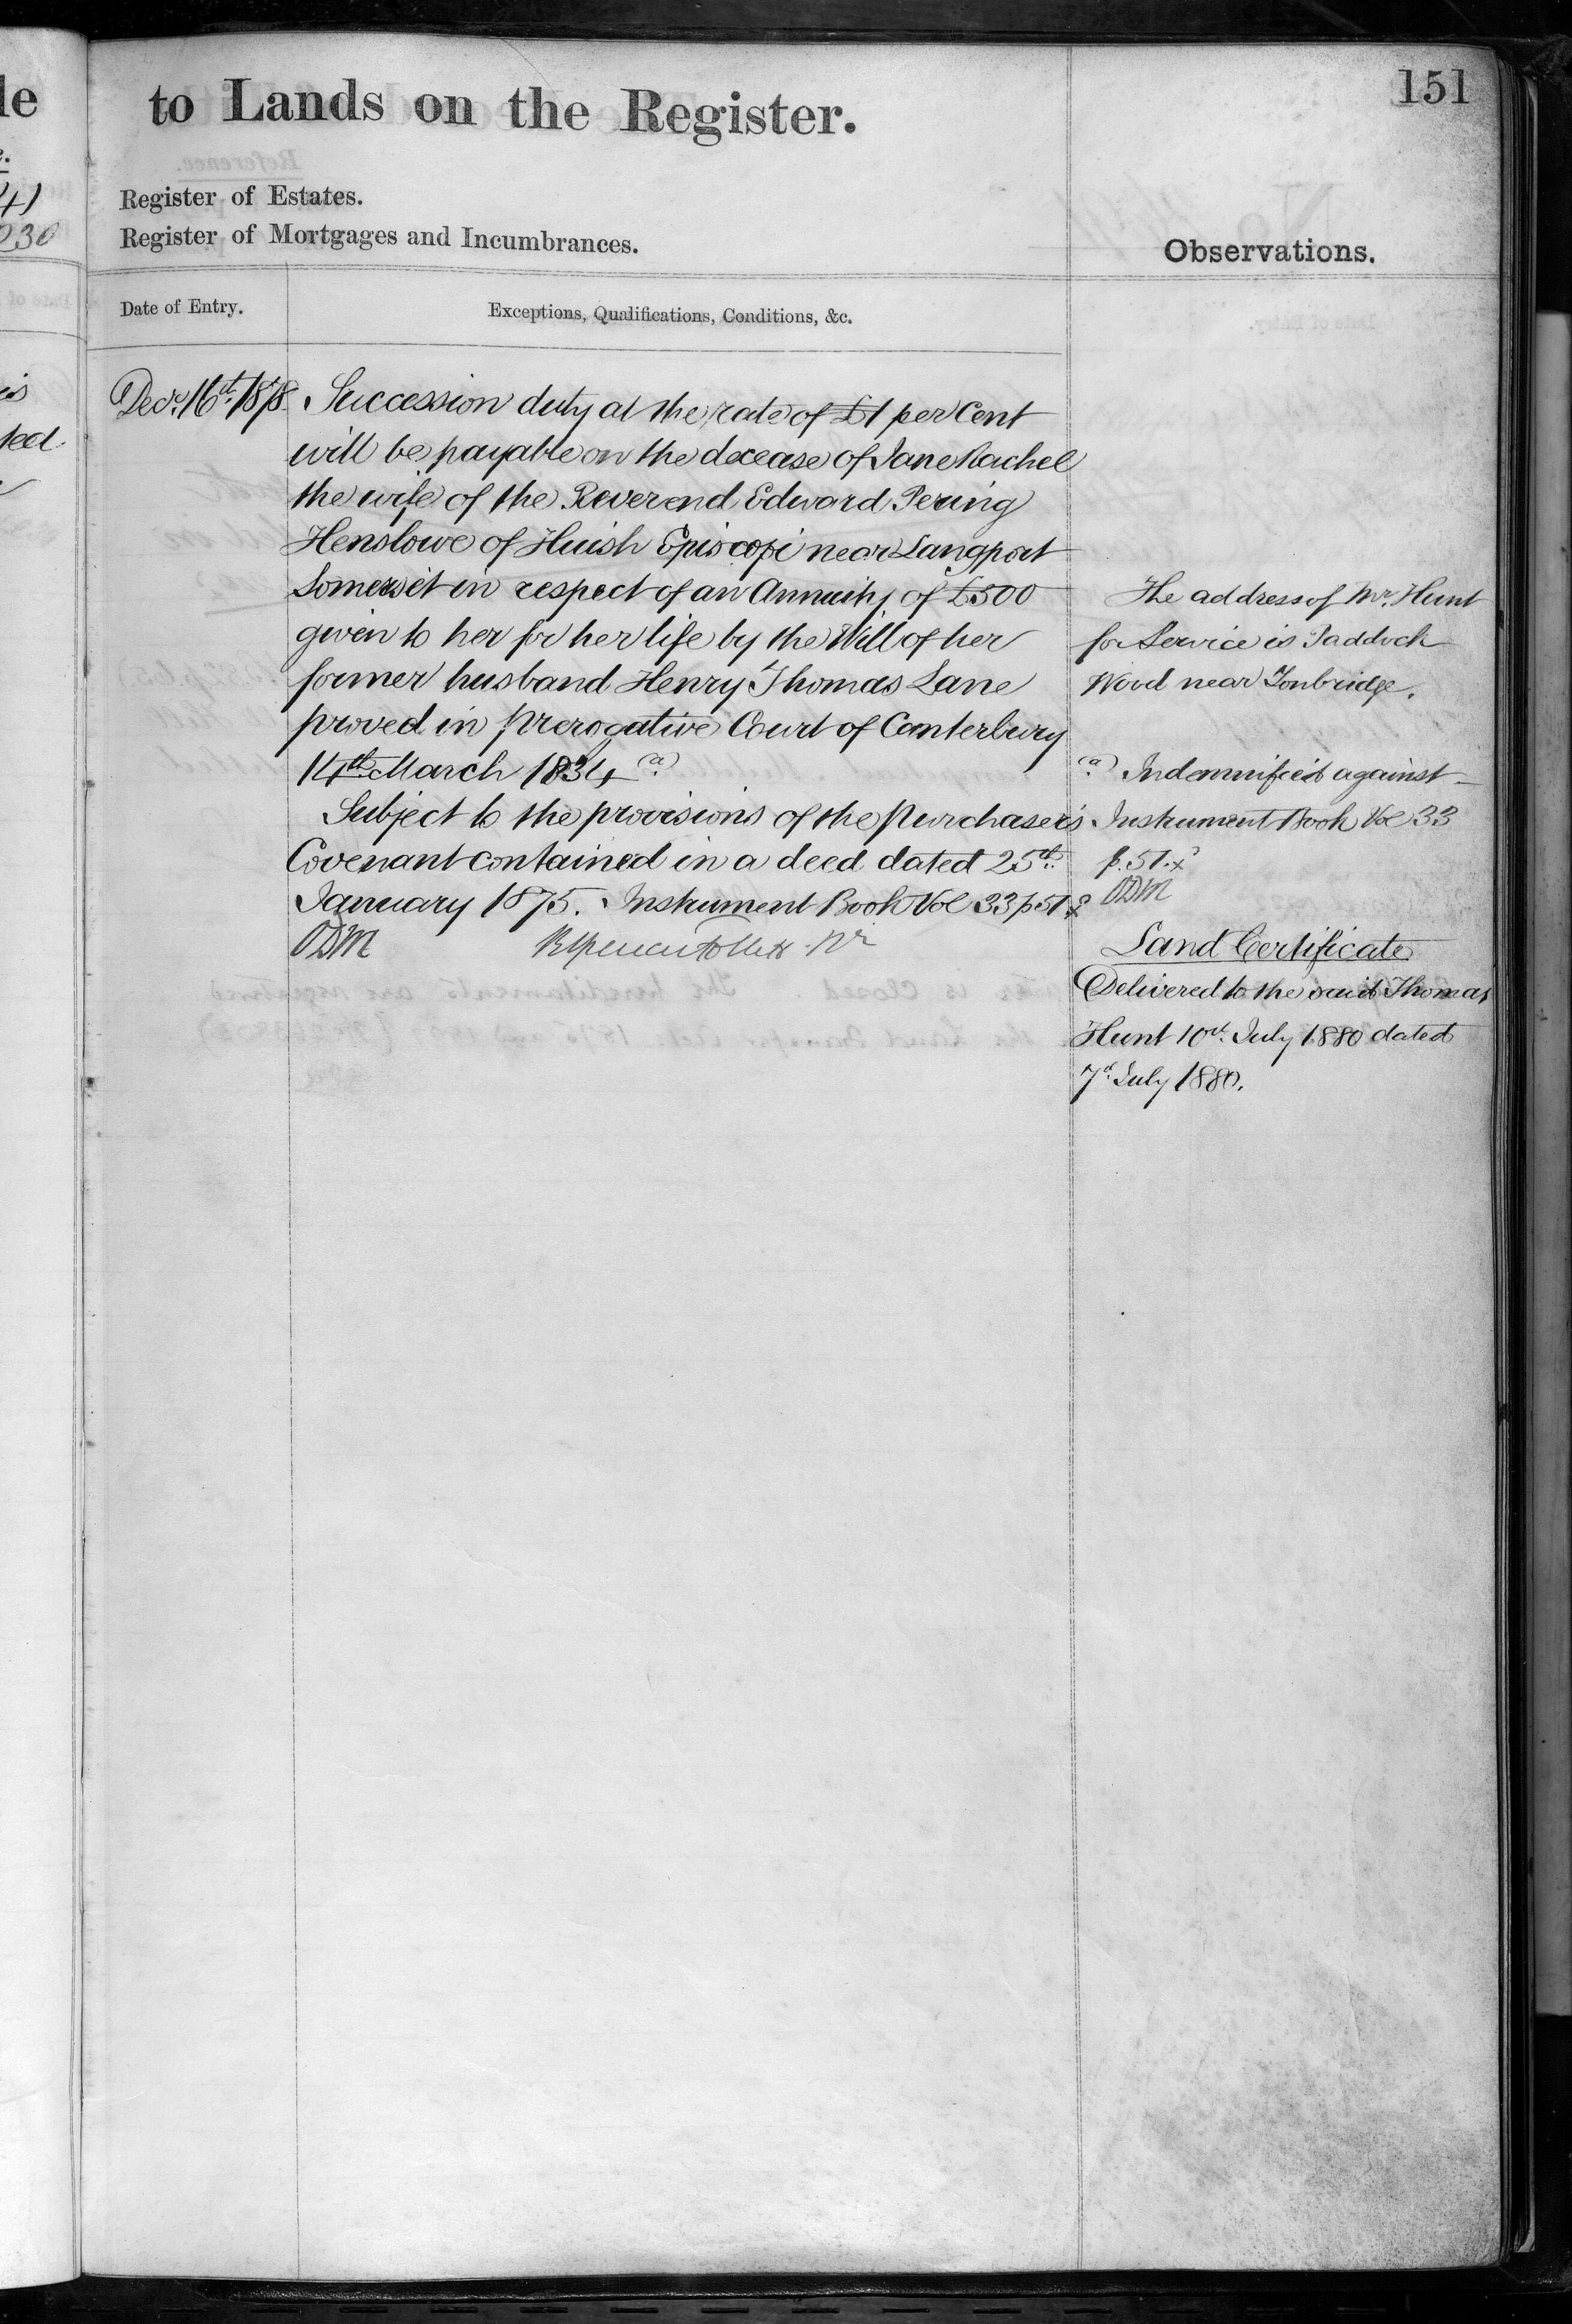 151
to Lands on the Register.
Register of Estates.
Register of Mortgages and Incumbrances.
Observations.
Date of Entry.
Exceptions, Qualifications, Conditions, &c.
Decr. 16th 1878.
Succession duty at the rate of £1 per Cent
will be payable on the decease of Jane Rachel
the wife of the Reverend Edward Pering
Henslowe of Huish Episcopi near Langport
Somerset in respect of an Annuity of £500
given to her for her life by the Will of her
former husband Henry Thomas Lane
proved in Prerogative Court of Canterbury
14th March 1834 (a)
Subject to the provisions of the Purchaser's
Covenant contained in a deed dated 25th
January 1875. Instrument Book Vol 33 p 51
ODM
The address of Mr. Hunt
for Service is Paddock
Wood near Tonbridge.
(a) Indemnified against
Instrument Book Vol 33
p. 51.
ODM
Land Certificate
Delivered to the said Thomas
Hunt 10th. July 1880 dated
7th July 1880.
le
41
230
is
ted